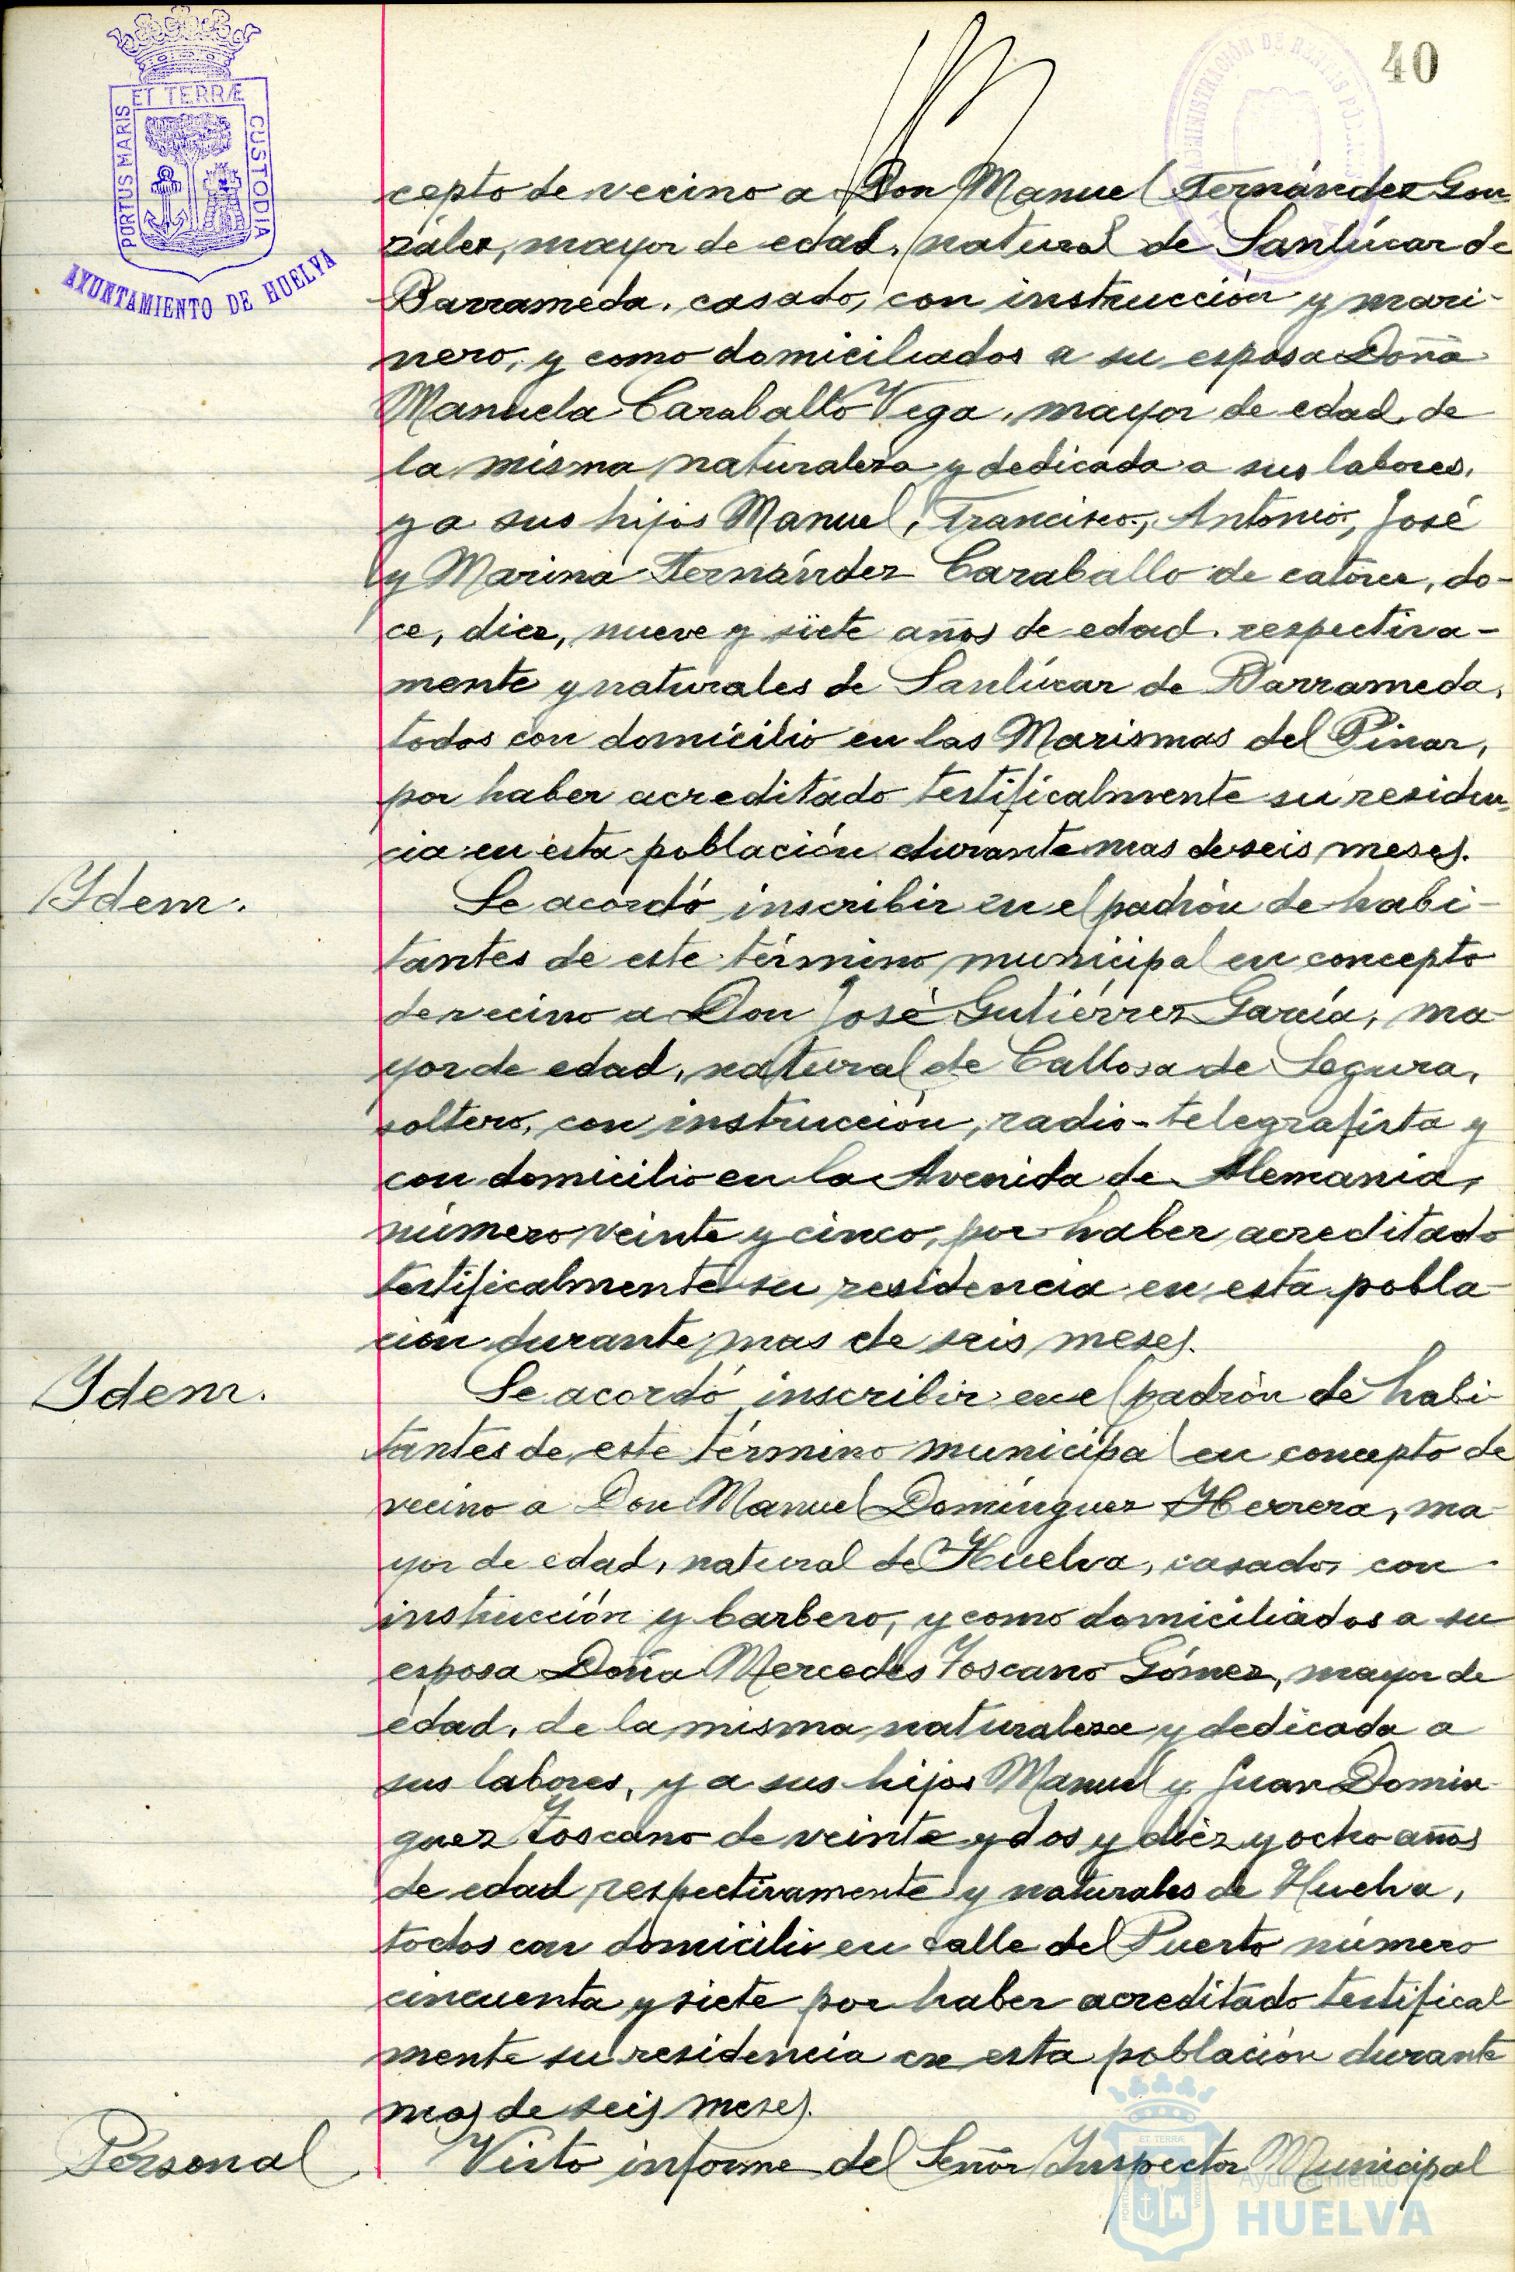 40
ET TERRÆ
PORTUS MARIS
CUSTODIA
AYUNTAMIENTO DE HUELVA
ADMINISTRACIÓN DE RENTAS PÚBLICAS
cepto de vecino a Don Manuel Fernández Gon
zález, mayor de edad, natural de Sanlúcar de
Barrameda, casado, con instrucción y mari-
nero, y como domiciliados a su esposa Doña
Manuela Caraballo Vega, mayor de edad, de
la misma naturaleza y dedicada a sus labores,
y a sus hijos Manuel, Francisco, Antonio, José
y Marina Fernández Caraballo de catorce, do-
ce, diez, nueve y siete años de edad respectiva-
mente y naturales de Sanlúcar de Barrameda,
todos con domicilio en las Marismas del Pinar,
por haber acreditado testificalmente su residen
cia en esta población durante mas de seis meses.
Ydem.
Se acordó inscribir en el padrón de habi-
tantes de este término municipal en concepto
de vecino a Don José Gutiérrez García, ma
yor de edad, natural de Callosa de Segura,
soltero, con instrucción, radio-telegrafista y
con domicilio en la Avenida de Alemania,
número veinte y cinco, por haber acreditado
testificalmente su residencia en esta pobla-
ción durante mas de seis meses.
Ydem.
Se acordó inscribir en el padrón de habi
tantes de este término municipal en concepto de
vecino a Don Manuel Domínguez Herrera, ma
yor de edad, natural de Huelva, casado, con
instrucción y barbero, y como domiciliados a su
esposa Doña Mercedes Toscano Gómez, mayor de
edad, de la misma naturaleza y dedicada a
sus labores, y a sus hijos Manuel y Juan Domin
guez Toscano de veinte y dos y diez y ocho años
de edad respectivamente y naturales de Huelva,
todos con domicilio en calle del Puerto número
cincuenta y siete por haber acreditado testifical
mente su residencia en esta población durante
mas de seis meses.
Personal
Visto informe del Señor Inspector Municipal
Ayuntamiento de
HUELVA